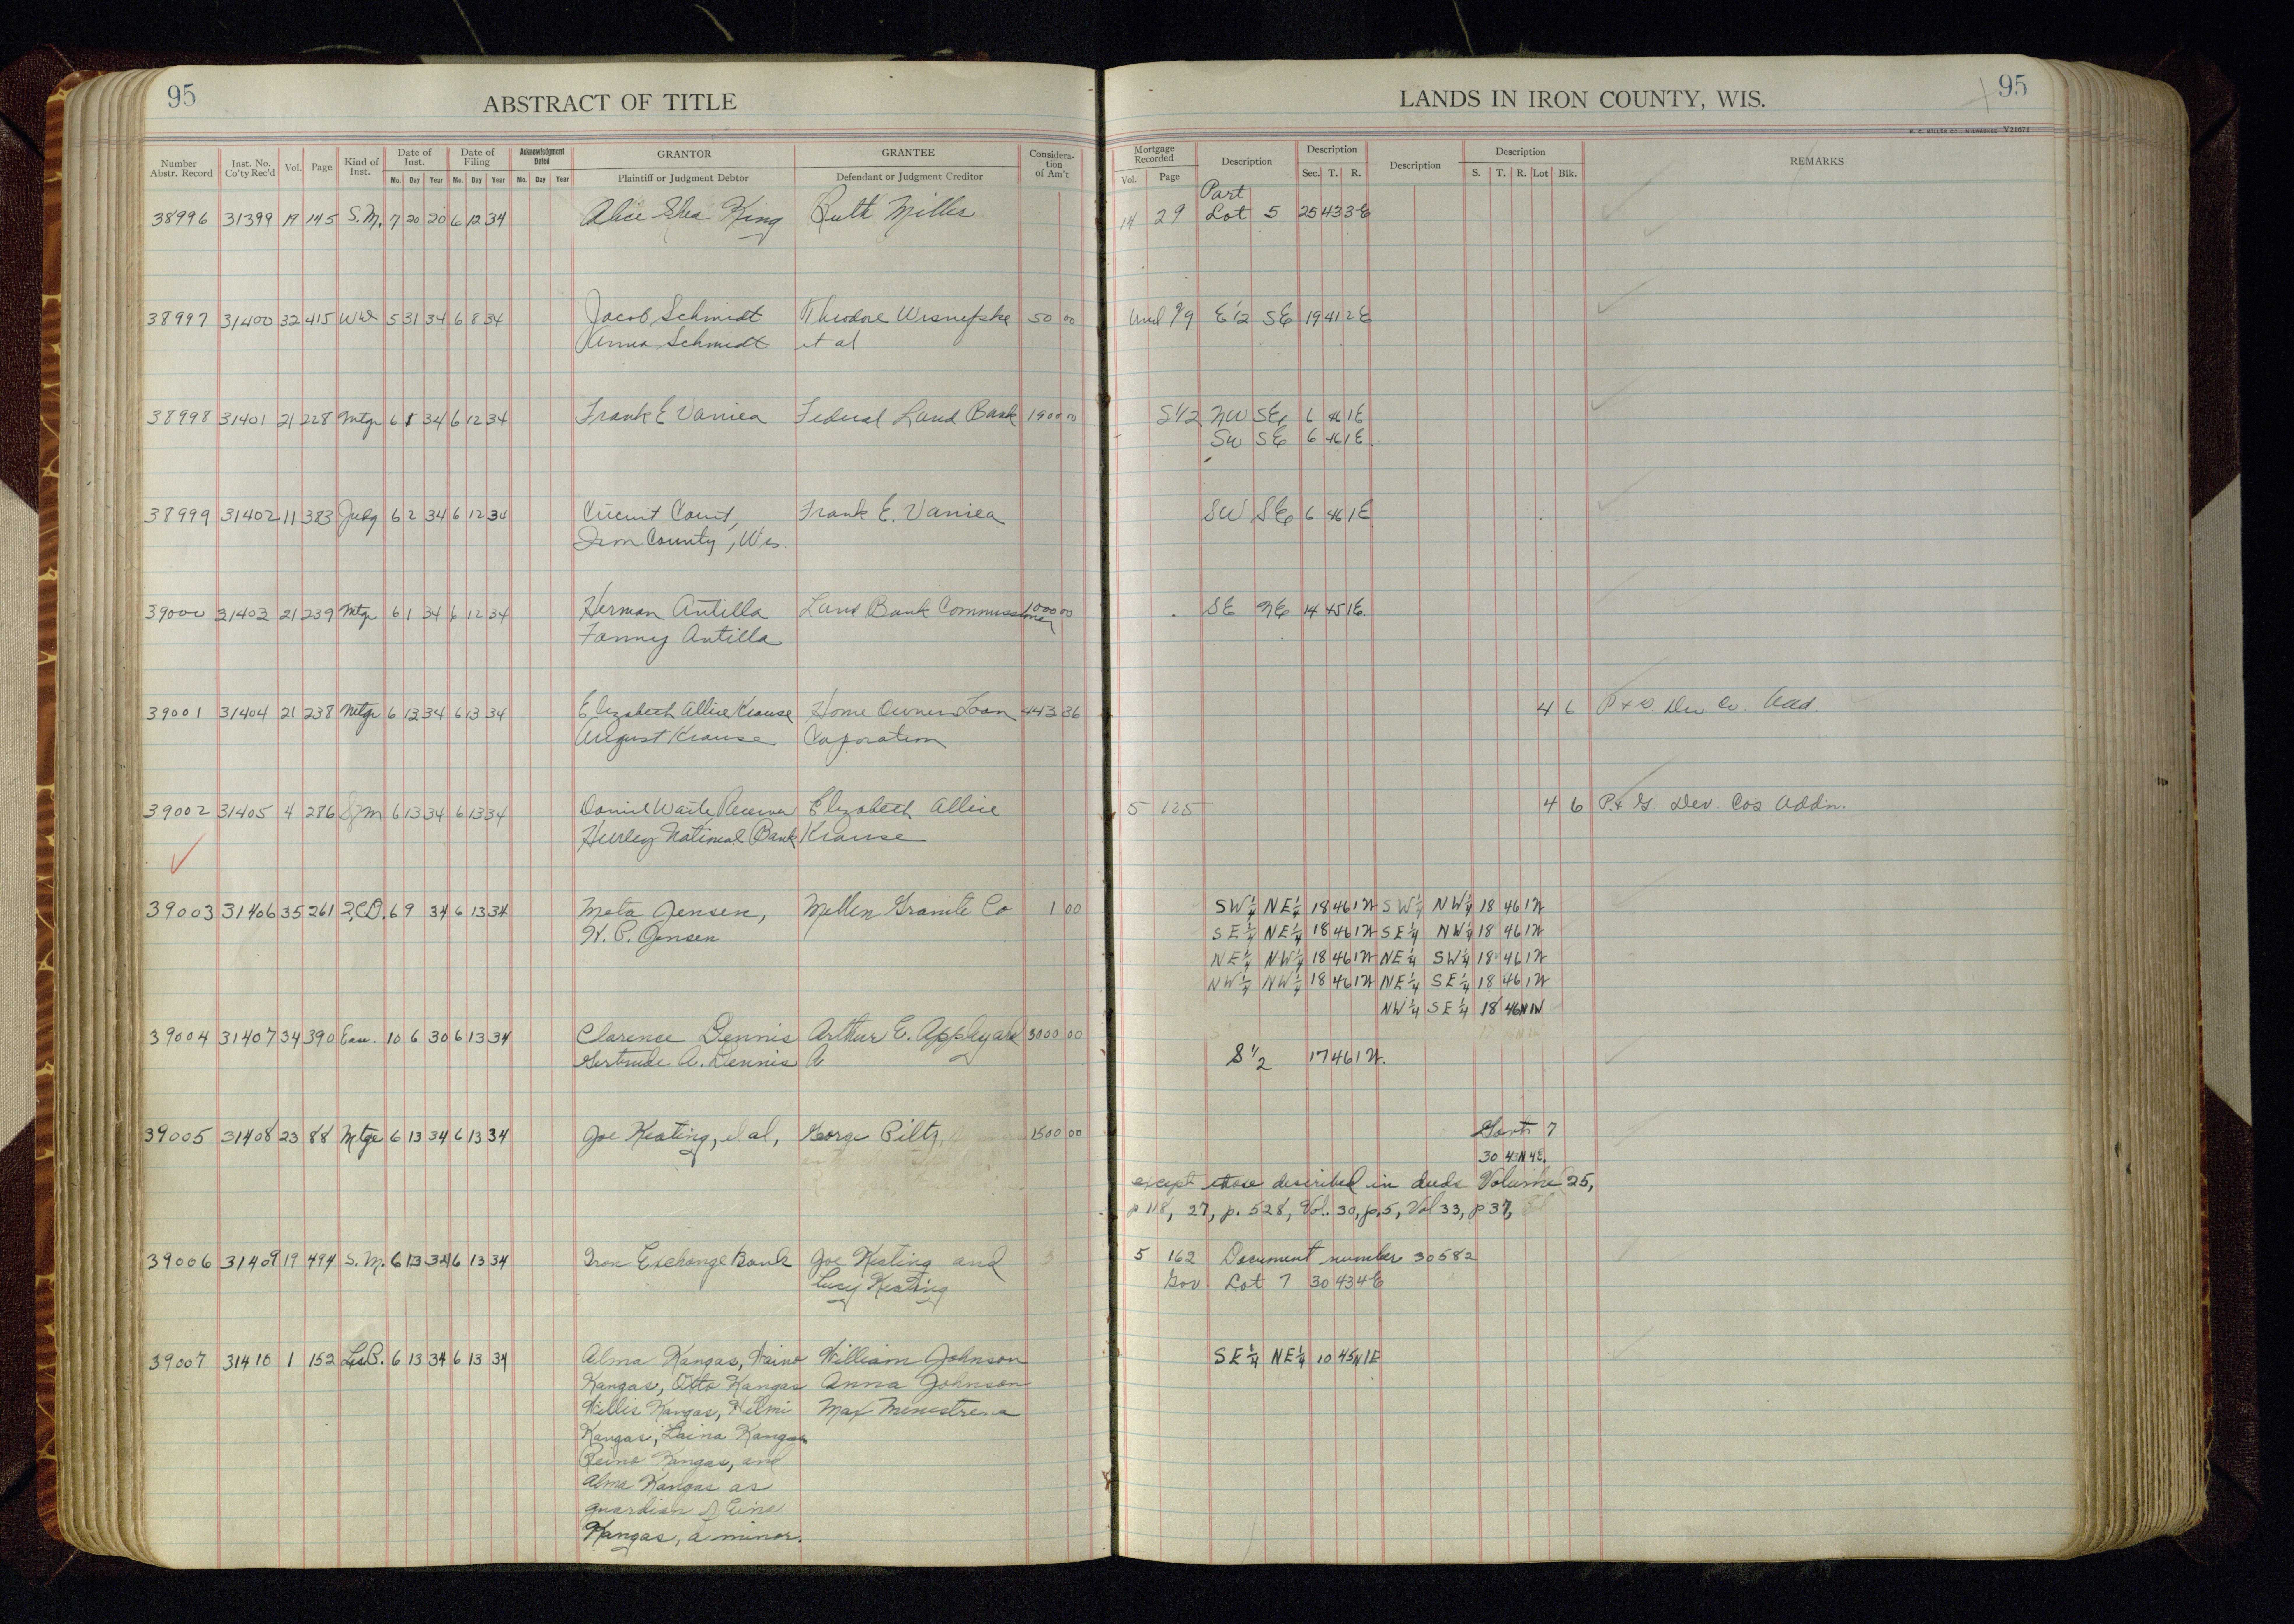 95
ABSTRACT OF TITLE
LANDS IN IRON COUNTY, WIS.
95
H. C. MILLER CO., MILWAUKEE V21671
Number Abstr. Record
Inst. No. Co'ty Rec'd
Vol.
Page
Kind of Inst.
Date of Inst.
Mo. Day Year
Date of Filing
Mo. Day Year
Acknowledgment Dated
Mo. Day Year
GRANTOR
Plaintiff or Judgment Debtor
GRANTEE
Defendant or Judgment Creditor
Considera-tion of Am't
Mortgage Recorded
Vol. Page
Description
Description
Sec. T. R.
Description
Description
S. T. R. Lot Blk.
REMARKS
Part
38996 31399 19 145 S.M. 7 20 20 6 12 34 Alice Shea King Ruth Mills 14 29 Lot 5 25 43 3E
38997 31400 32 415 WD 5 31 34 6 8 34 Jacob Schmidt Theodore Wisnefske 50 00 Und 9/9 E 1/2 SE 19 41 2E
Anna Schmidt et al
38998 31401 21 228 Mtge 6 1 34 6 12 34 Frank E Vaniea Federal Land Bank 1900 00 S1/2 NW SE 6 46 1E
SW SE 6 46 1E
38999 31402 11 383 Judg 6 2 34 6 12 34 Circuit Court, Frank E. Vaniea SW SE 6 46 1E
Iron County, Wis.
39000 31403 21 239 Mtge 6 1 34 6 12 34 Herman Antilla Land Bank Commissioner 1000 00 SE NE 14 45 1E.
Fanny Antilla
39001 31404 21 238 Mtge 6 12 34 6 13 34 Elizabeth Allice Krause Home Owners Loan 443 36 4 6 P & G. Dev. Co. Add.
August Krause Coporation
39002 31405 4 286 SM 6 13 34 6 13 34 Daniel Waite Receiver Elizabeth Allice 5 125 4 6 P. & G. Dev. Cos Addn.
Hurley National Bank Krause
39003 31406 35 261 Q.C.D. 6 9 34 6 13 34 Meta Jensen, Mellen Granite Co 1 00 SW¼ NE¼ 18 46 1W SW¼ NW¼ 18 46 1W
H. P. Jensen SE¼ NE¼ 18 46 1W SE¼ NW¼ 18 46 1W
NE¼ NW¼ 18 46 1W NE¼ SW¼ 18 46 1W
NW¼ NW¼ 18 46 1W NE¼ SE¼ 18 46 1W
NW¼ SE¼ 18 46N 1W
39004 31407 34 390 Eas. 10 6 30 6 13 34 Clarence Dennis Arthur E. Appleyard 3000 00
Gertrude A. Dennis S 1/2 17 46 1W.
39005 31408 23 88 Mtge 6 13 34 6 13 34 Joe Keating, et al, George Piltz, 1500 00 7
30 43N 4E.
except those described in deeds Volume 25,
p 118, 27, p. 528, Vol. 30, p.5, Vol 33, p 37,
39006 31409 19 494 S.M. 6 13 34 6 13 34 Iron Exchange Bank Joe Keating and 5 162 Document number 30582
Lucy Keating Gov. Lot 7 30 43 4E
39007 31410 1 152 Ls.P. 6 13 34 6 13 34 Alma Kangas, Waino William Johnson SE¼ NE¼ 10 45N 1E
Kangas, Otto Kangas Anna Johnson
Willis Kangas, Helmi Max Menestrena
Kangas, Laina Kangas
Reino Kangas, and
Alma Kangas as
guardian of Eino
Kangas, a minor.